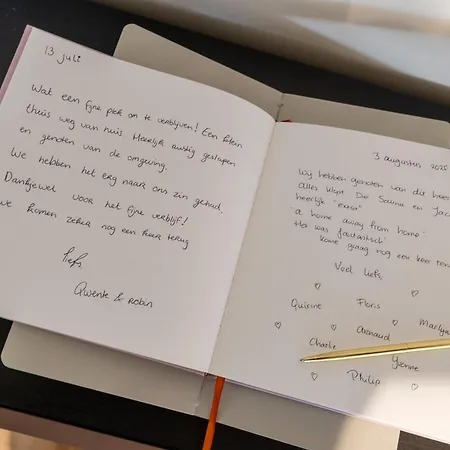 13 juli
Wat een fijne plek om te verblijven! Een klein
thuis weg van huis Heerlijk rustig geslapen
en genoten van de omgeving.
We hebben het erg naar ons zin gehad.
Dankjewel voor het fijne verblijf!
We komen zeker nog een keer terug
liefs,
Qwente & Robin
3 augustus 2025
Wij hebben genoten van dit
alles klopt De Sauna en
heerlijk
'a home away from home'.
Het was fantastisch
kome graag nog een keer
Veel liefs
Quirine Floris
Charlie Arnaud
Yvonne
Philip